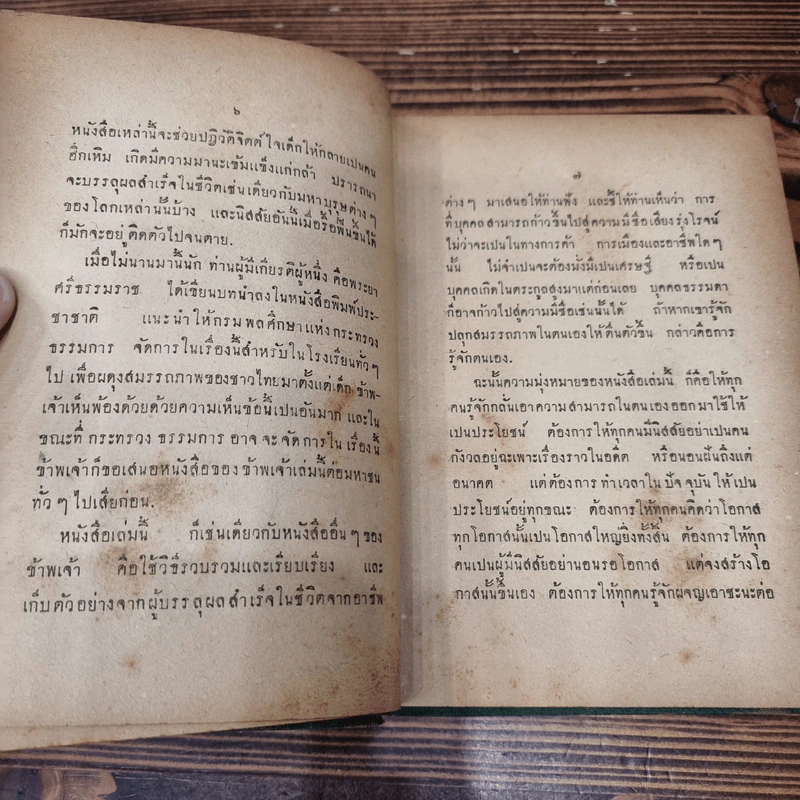 ๖
หนังสือเหล่านี้จะช่วยปฏิวัติจิตต์ใจเด็กให้กลายเปนคน
ฮึกเหิม เกิดมีความมานะเข้มแข็งแก่กล้า ปรารถนา
จะบรรลุผลสำเร็จในชีวิตเช่นเดียวกับมหาบุรุษต่างๆ
ของโลกเหล่านั้นบ้าง และนิสสัยอันนี้เมื่อรื้อฟื้นขึ้นได้
ก็มักจะอยู่ติดตัวไปจนตาย.
เมื่อไม่นานมานี้นัก ท่านผู้มีเกียรติผู้หนึ่ง คือพระยา
ศรีธรรมราช ได้เขียนบทนำลงในหนังสือพิมพ์ประ-
ชาชาติ แนะนำให้กรมพลศึกษาแห่งกระทรวง
ธรรมการ จัดการในเรื่องนี้สำหรับในโรงเรียนทั่วๆ
ไป เพื่อผดุงสมรรถภาพของชาวไทยมาตั้งแต่เด็ก ข้าพ-
เจ้าเห็นพ้องด้วยด้วยความเห็นข้อนี้เปนอันมาก และใน
ขณะที่กระทรวงธรรมการอาจจะจัดการในเรื่องนี้
ข้าพเจ้าก็ขอเสนอหนังสือของข้าพเจ้าเล่มนี้ต่อมหาชน
ทั่วๆไปเสียก่อน.
หนังสือเล่มนี้ ก็เช่นเดียวกับหนังสืออื่นๆของ
ข้าพเจ้า คือใช้วิธีรวบรวมและเรียบเรียง และ
เก็บตัวอย่างจากผู้บรรลุผลสำเร็จในชีวิตจากอาชีพ
๗
ต่างๆ มาเสนอให้ท่านฟัง และชี้ให้ท่านเห็นว่า การ
ที่บุคคลสามารถก้าวขึ้นไปสู่ความมีชื่อเสียงรุ่งโรจน์
ไม่ว่าจะเปนในทางการค้า การเมืองและอาชีพใดๆ
นั้น ไม่จำเปนจะต้องมั่งมีเปนเศรษฐี หรือเปน
บุคคลเกิดในตระกูลสูงมาแต่ก่อนเลย บุคคลธรรมดา
ก็อาจก้าวไปสู่ความมีชื่อเช่นนั้นได้ ถ้าหากเขารู้จัก
ปลุกสมรรถภาพในตนเองให้ตื่นตัวขึ้น กล่าวคือการ
รู้จักตนเอง.
ฉะนั้นความมุ่งหมายของหนังสือเล่มนี้ ก็คือให้ทุก
คนรู้จักกลั่นเอาความสามารถในตนเองออกมาใช้ให้
เปนประโยชน์ ต้องการให้ทุกคนมีนิสสัยอย่าเปนคน
กังวลอยู่ฉะเพาะเรื่องราวในอดีต หรือนอนฝันถึงแต่
อนาคต แต่ต้องการทำเวลาในปัจจุบันให้เปน
ประโยชน์อยู่ทุกขณะ ต้องการให้ทุกคนคิดว่าโอกาส
ทุกโอกาสนั้นเปนโอกาสใหญ่ยิ่งทั้งสิ้น ต้องการให้ทุก
คนเปนผู้มีนิสสัยอย่านอนรอโอกาส แต่จงสร้างโอ
กาสนั้นขึ้นเอง ต้องการให้ทุกคนรู้จักผจญเอาชะนะต่อ